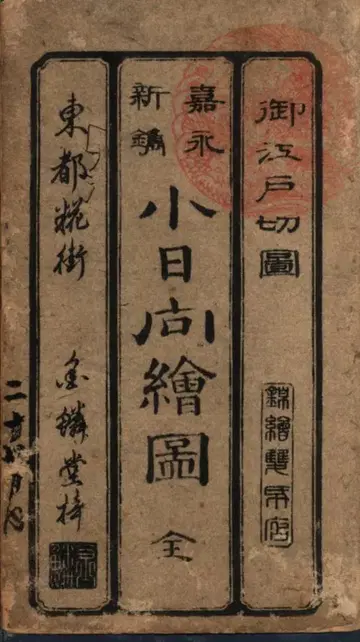 御江戸切圖
錦繪雙帋店
嘉永
新鐫
小日向繪圖 全
東都糀街 金鱗堂梓